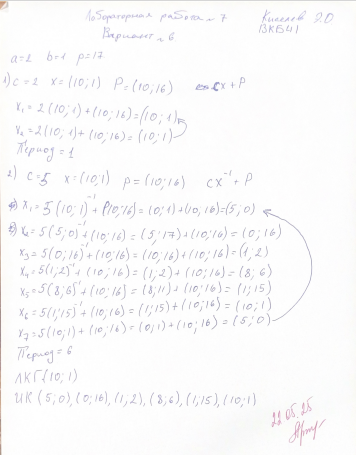 Лабораторная работа №7
Вариант №6
Киселев Э.О
ВКБ41
a=2 b=1 p=17
1) c=2 x=(10;1) P=(10;16) cx+P
x₁=2(10;1)+(10;16)=(10;1)
x₂=2(10;1)+(10;16)=(10;1)
Период=1
2) c=5 x=(10;1) p=(10;16) cx⁻¹+P
x₁=5(10;1)⁻¹+(10;16)=(0;1)+(10;16)=(5;0)
x₂=5(5;0)⁻¹+(10;16)=(5;17)+(10;16)=(0;16)
x₃=5(0;16)⁻¹+(10;16)=(10;16)+(10;16)=(1,2)
x₄=5(1;2)⁻¹+(10;16)=(1;2)+(10;16)=(8;6)
x₅=5(8;6)⁻¹+(10;16)=(8;11)+(10;16)=(1;15)
x₆=5(1;15)⁻¹+(10;16)=(1;15)+(10;16)=(10;1)
x₇=5(10;1)+(10;16)=(0;1)+(10;16)=(5;0)
Период=6
ЛКГ(10;1)
ИК (5;0),(0;16),(1;2),(8;6),(1;15),(10;1)
22.05.25